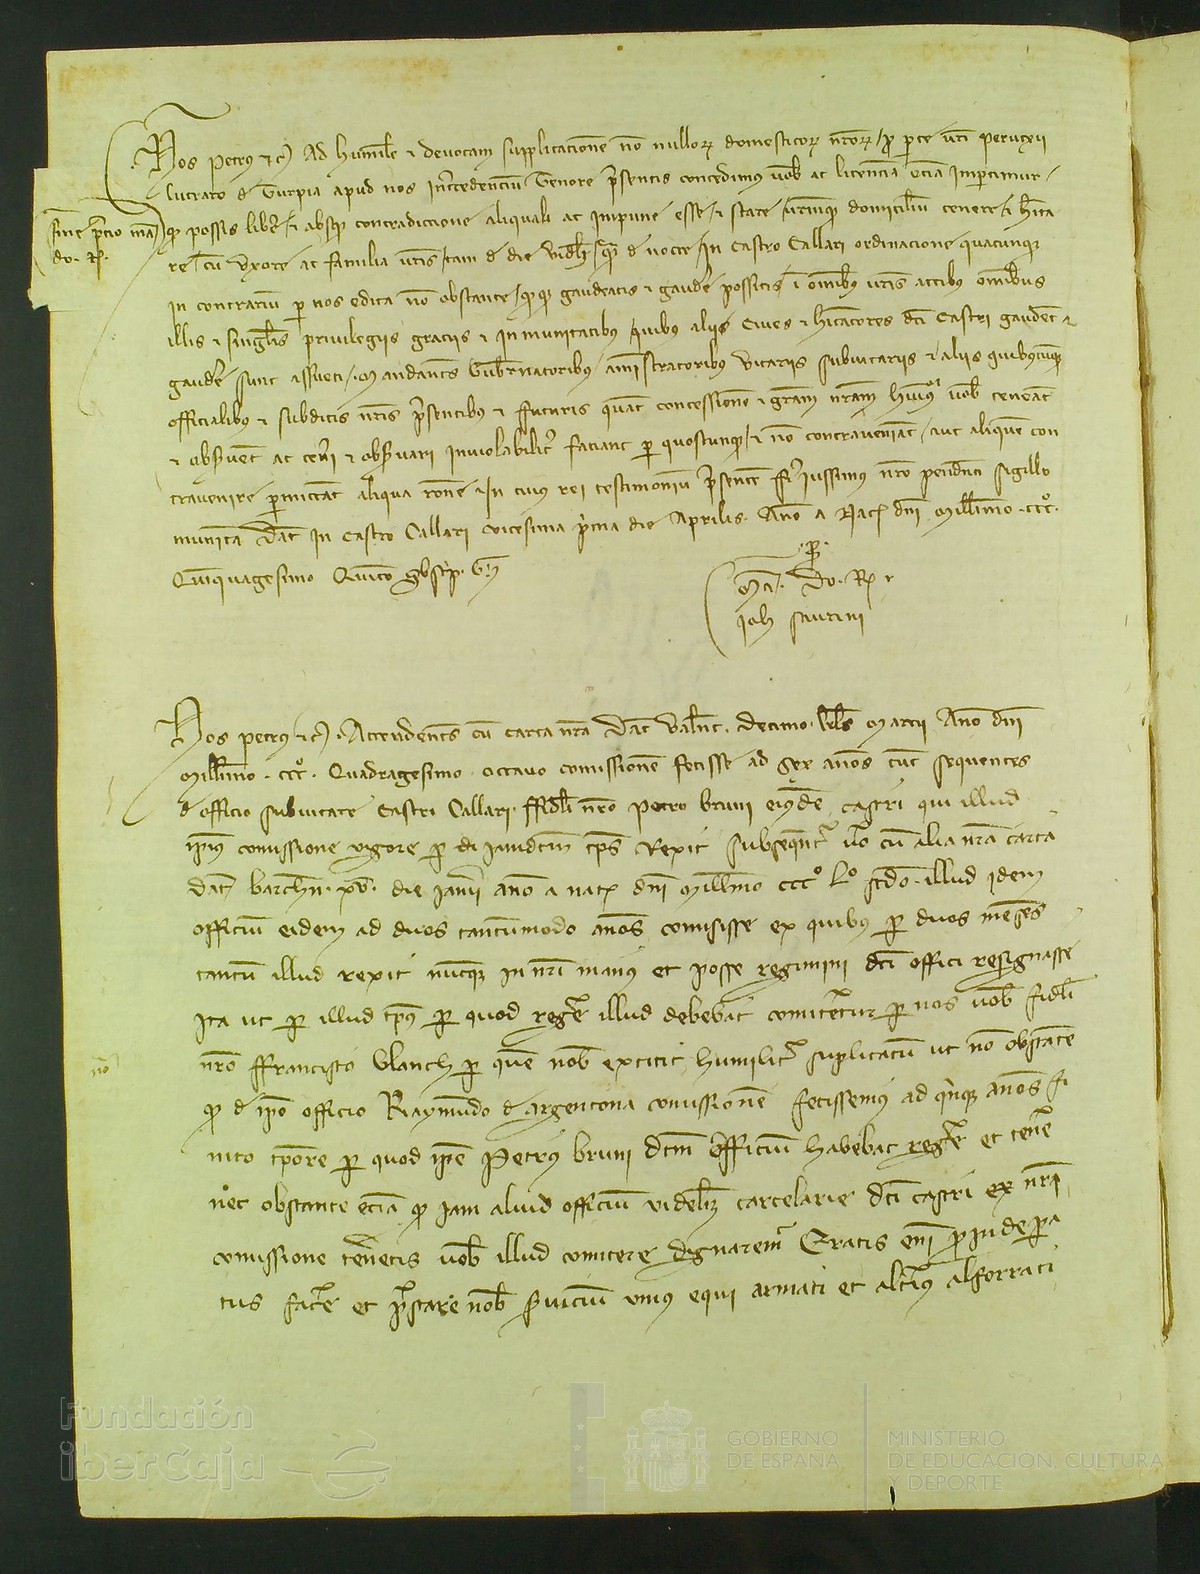 Nos Petrus etc. Ad humile et devotam supplicacione no nullorz domesticorz nrorz pro parte vri Peruxii
Lucrato de Turpia apud nos intercedentiu Tenore presentis concedimus vob ac licencia ecia impertimur
sine precio ma
do. R.
qp possis libere et absqz contradiccione aliquali ac impune esse et stare vrumqz domiciliu tenere et hita
re cu uxore ac familia vris tam de die videlz quam de nocte in Castro Callari ordinacione quacunqz
in contrariu per nos edita no obstante qp qz gaudeatis et gaudere possitis i omibz vris actibus omibus
illis et singlis privilegiis graciis et inmunitatibus quibus alii Cives et hitatores dci Castri gaudent et
gaudere sunt assueti. Mandantes Gubernatoribus amistratoribus vicariis subvicariis et aliis quibuscumqz
officialibus et subditis nris presentibus et futuris quat concessione et gram nram huius vob teneat
et observent ac teneri et observari inviolabiliter faciant per quoscunqz et no contraveniat aut aliquem con
travenire permittat aliqua rone. In cuius rei testimoniu presente fieri iussimus nro pendenti sigillo
munita Dat in Castro Callari vicesima prima die Aprilis. Ano a Nat dni Millimo CCCo.
Quinquagesimo Quinto
Ma. do. R
Joh
Nos Petrus etc. Attendentes cu carta nra Dat Valent. decimo kls Marcii Ano dni
Millimo CCCo. Quadragesimo octavo comissione fecisse ad sex anos tunc sequentes
de officio subvicarie Castri Callari. ffideli nro Petro bruni eiusde castri qui illud
ipius comissione vigore per diu iamdcm tps rexit subsequenter vero cu alia nra carta
Dat barchn. xv. die Janii ano a nat dni Millimo CCCo Lo scdo. illud idem
officiu eidem ad duos tantummodo anos comisisse ex quibus per duos menses
tantu illud rexit nuncqz in nri manus et posse regimini dci offici resignasse
Ita ut per illud tpus per quod regere illud debebat comiteretur per nos vob fideli
nro ffrancisco blanch per que nob extitit humiliter suplicatu ut no obstante
qp de ipo officio Raymundo de argentona comissione fecissemus ad quinqz anos fi
no
nito tpore per quod ipe Petrus bruni dcm officiu habebat regere et tenere
nec obstante ecia qp iam aliud officiu videlz carcelarie dci castri ex nra
comissione tenetis vob illud comitere dignaremur Gratis eni proinde para
tus facere et prestare nob serviciu unius equi armati et alterius alforrati
Fundación
iberCaja
GOBIERNO
DE ESPAÑA
MINISTERIO
DE EDUCACIÓN, CULTURA
Y DEPORTE